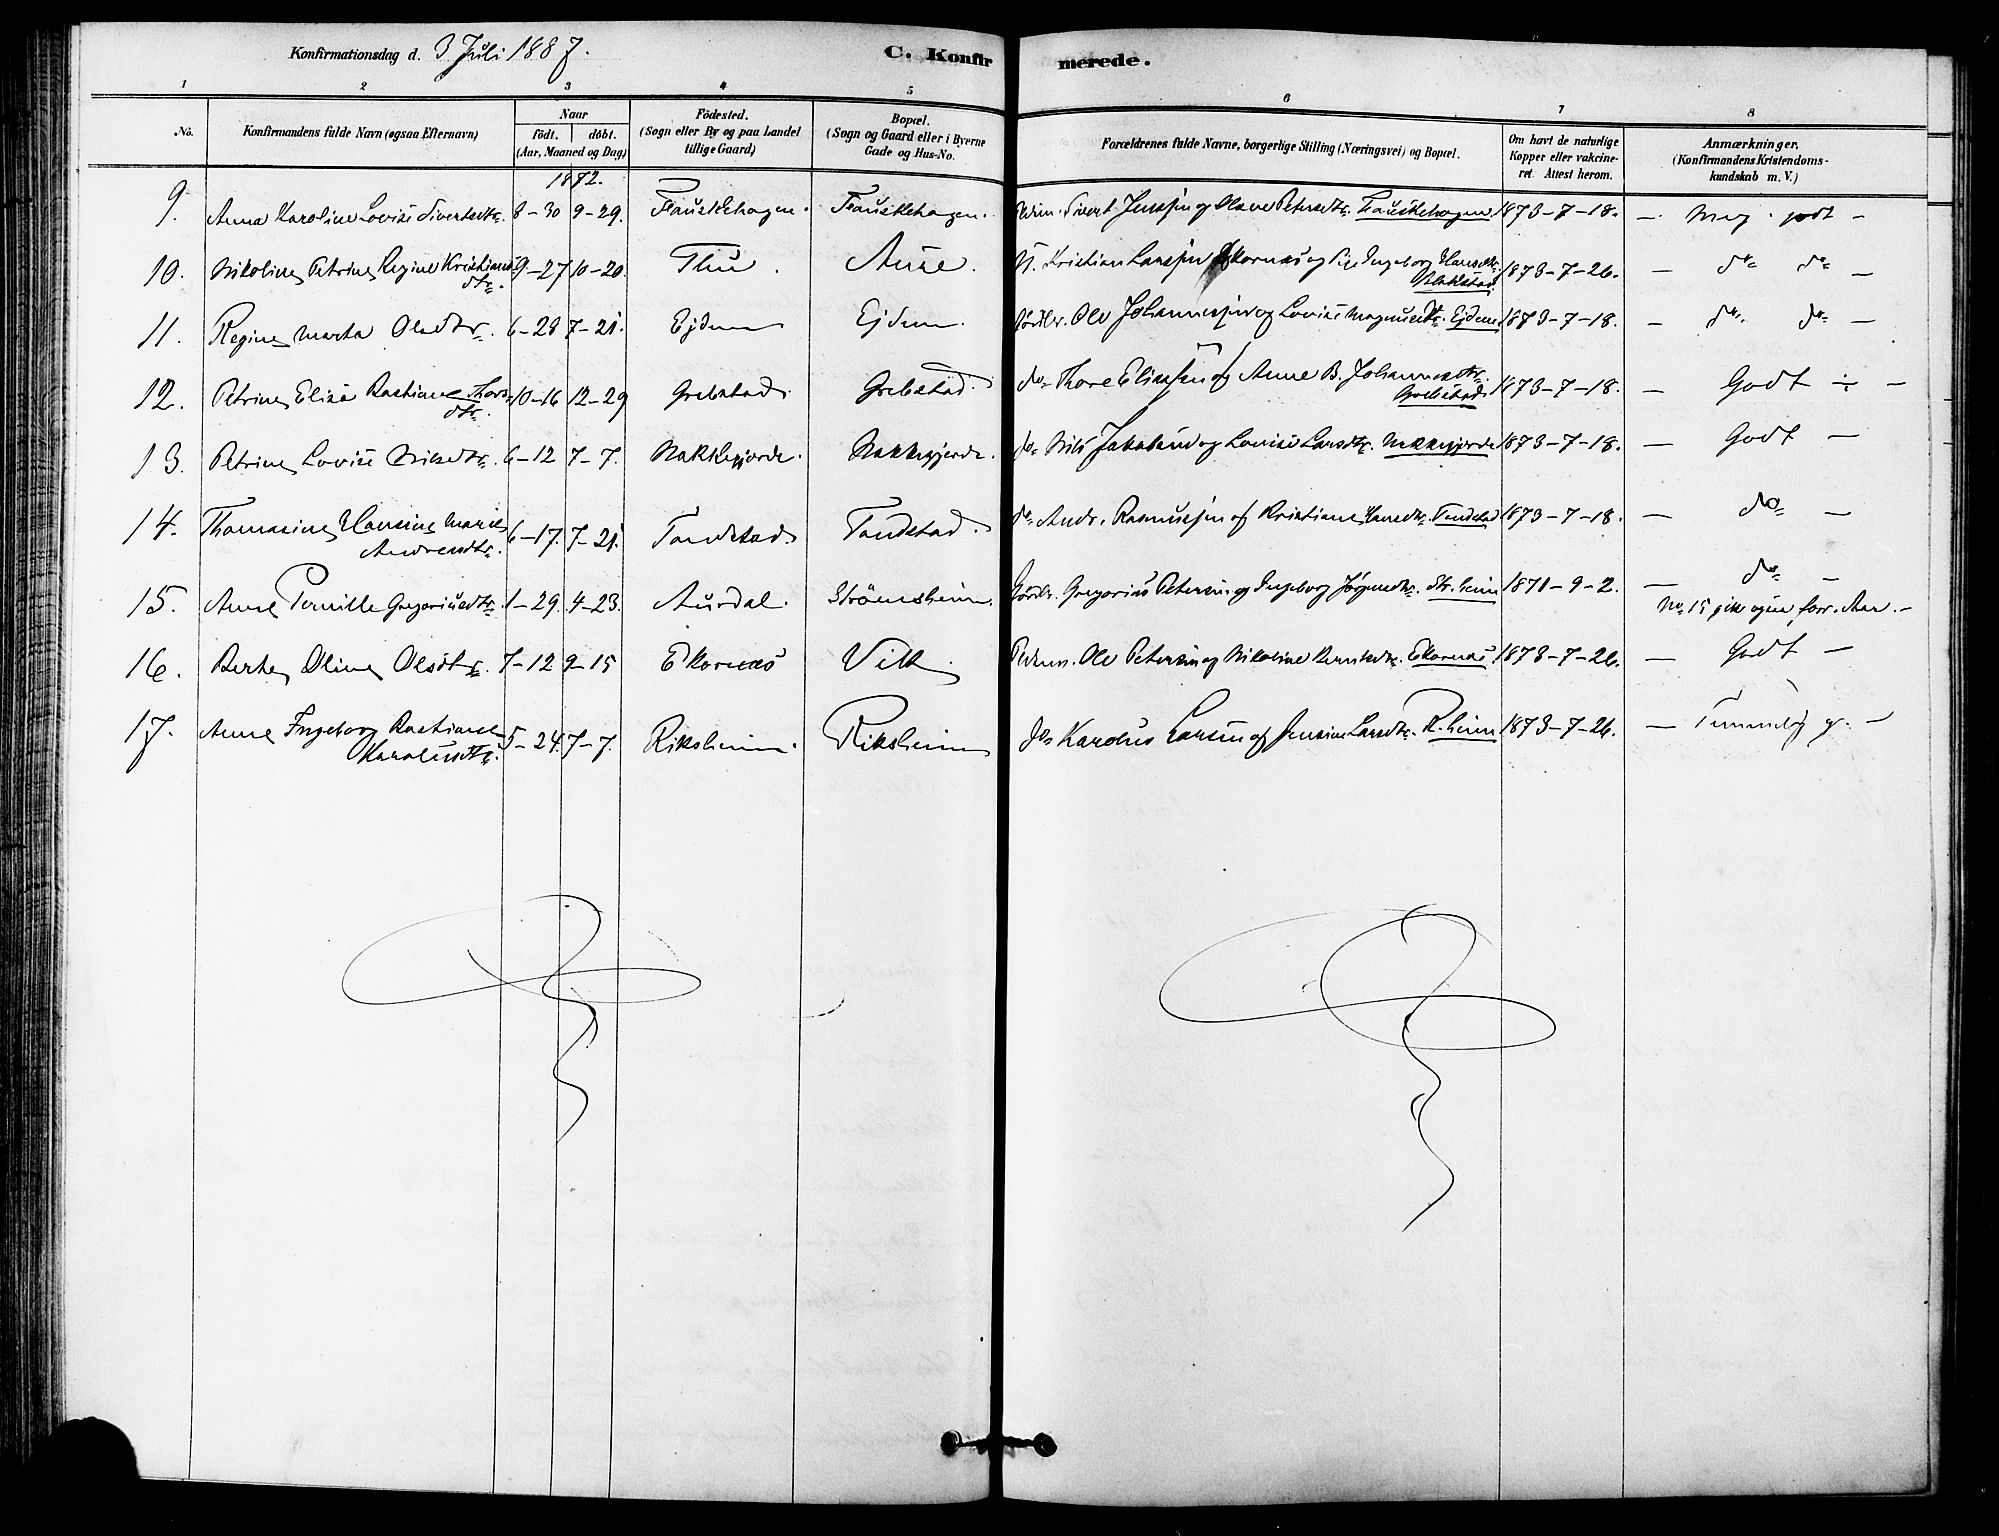 Konfirmationsdag d. 3 Juli 1887.
C. Konfirmerede.
1 2 3 4 5 6 7 8
No. Konfirmandens fulde Navn (ogsaa Efternavn) Naar födt. döbt. (Aar, Maaned og Dag) Födested. (Sogn eller By og paa Landet tillige Gaard) Bopæl. (Sogn og Gaard eller i Byerne Gade og Hus-No. Forældrenes fulde Navne, borgerlige Stilling (Næringsvei) og Bopæl. Om havt de naturlige Kopper eller vakcineret. Attest herom. Anmærkninger. (Konfirmandens Kristendomskundskab m. V.)
1872.
9. Anna Karoline Lovise Sivertsdtr. 8-30 9-29. Fauskehagen. Fauskehagen. Sivert Jenssen og Olave Petersdtr. Fauskehagen 1873-7-18. - Meg. godt -
10. Nikoline Petrine Regine Kristians dtr. 9-27 10-20. Thu. Aure. Kristian Larssen Ekornæs og Ingeborg Hansdtr. Blakstad. 1873-7-26. - do do -
11. Regine Marta Olsdtr. 6-28 7-21. Ejdem Ejdem. Ole Johannessen og Lovise Magnusdtr. Ejdem 1873-7-18. - do. do -
12. Petrine Elise Rastine Thors dtr. 10-16 12-29 Grebstad. Grebstad. do Thore Eliassen og Anne B. Johannesdtr. Grebstad 1873-7-18. - Godt ÷ -
13. Petrine Lovise Nilsdtr. 6-12 7-7. Nakkegjerde. Nakkegjerde. do Nils Jakobsen og Lovise Larsdtr. Nakkegjerde 1873-7-18. - Godt -
14. Thomasine Hansine Marie Andreasdtr. 6-17. 7-21. Tandstad. Tandstad. do Andr. Rasmussen og Kristiane Hansdtr. Tandstad 1873-7-18. - do -
15. Anne Pernille Gregoriusdtr. 1-29. 4-23. Aurdal. Strömsheim. Gregorius Petersen og Ingeborg Jörgensdtr. Str.heim 1871-9-2. - do -
No 15 gik ogsaa forr. Aar. -
16. Berte Oline Olsdtr. 7-12 9-15 Ekornæs Vik. Ole Petersen og Nikoline Berntsdtr. Ekornæs 1873-7-26. - Godt -
17. Anne Ingeborg Rastine Karolusdtr. 5-24. 7-7. Riksheim. Riksheim do Karolus Larsen og Jensine Larsdtr. R.heim 1873-7-26. - Temmelig g. -